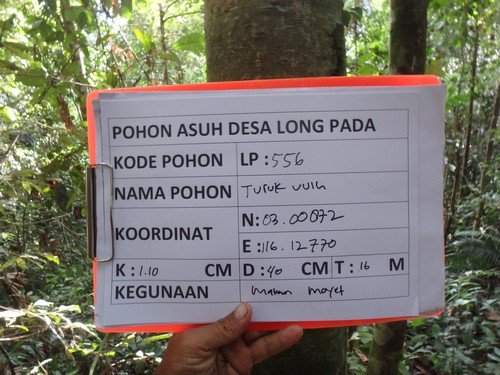 POHON ASUH DESA LONG PADA
KODE POHON LP : 556
NAMA POHON Turuk
KOORDINAT N: 03.00872
E : 116.12770
K : 1.10 CM D : 40 CM T : 16 M
KEGUNAAN Makan